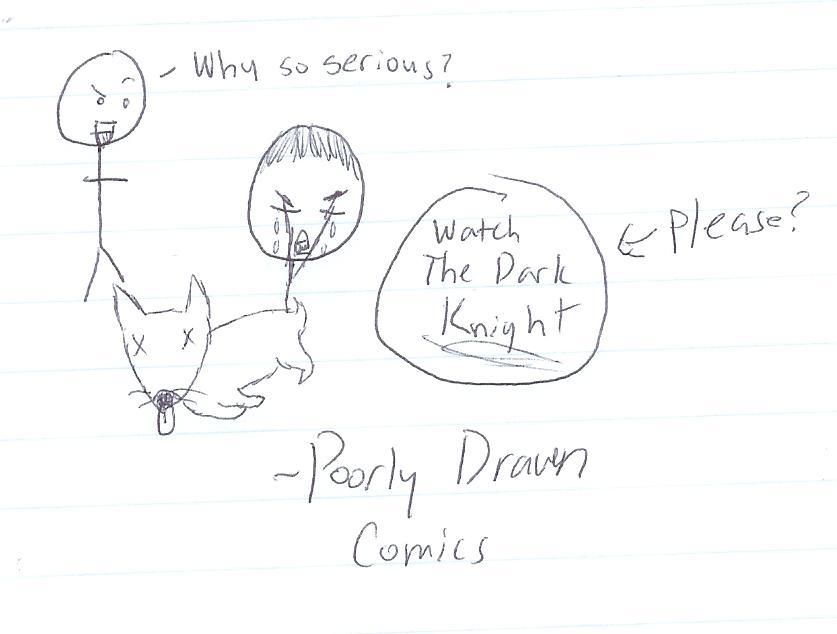 - Why so serious?
Watch
The Dark
Knight
← Please?
~Poorly Drawn
Comics